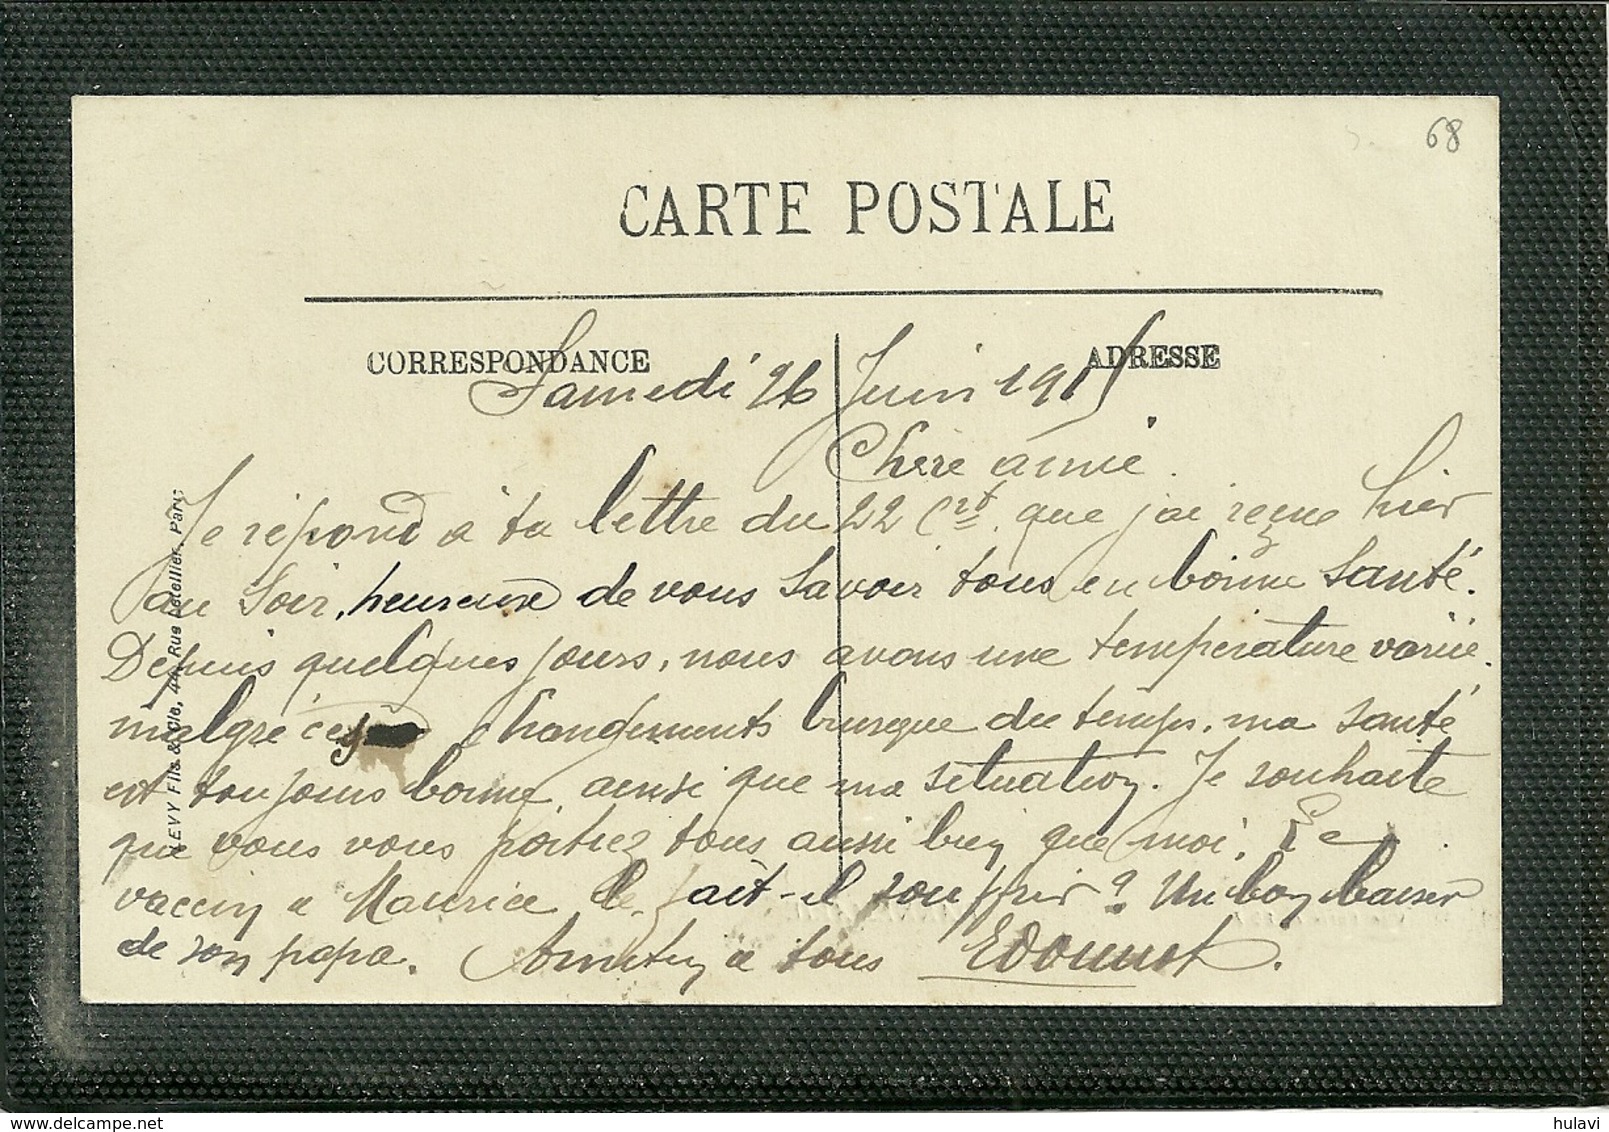 68
CARTE POSTALE
CORRESPONDANCE
ADRESSE
Samedi 26 Juin 1915
Chère amie.
Je répond à ta lettre du 22 Crt que j'ai reçue hier
au Soir, heureuse de vous Savoir tous en bonne Santé.
Depuis quelques jours, nous avons une température variée.
malgré ces changements brusque du temps, ma Santé
est toujours bonne, ainsi que ma situation. Je souhaite
que vous vous portiez tous aussi bien que moi. Le
vaccin à Maurice le fait-il souffrir? Un bon baiser
de son papa. à tous
LEVY Fils & Cie, 44, Rue Letellier, Paris
delcampe.net
hulavi